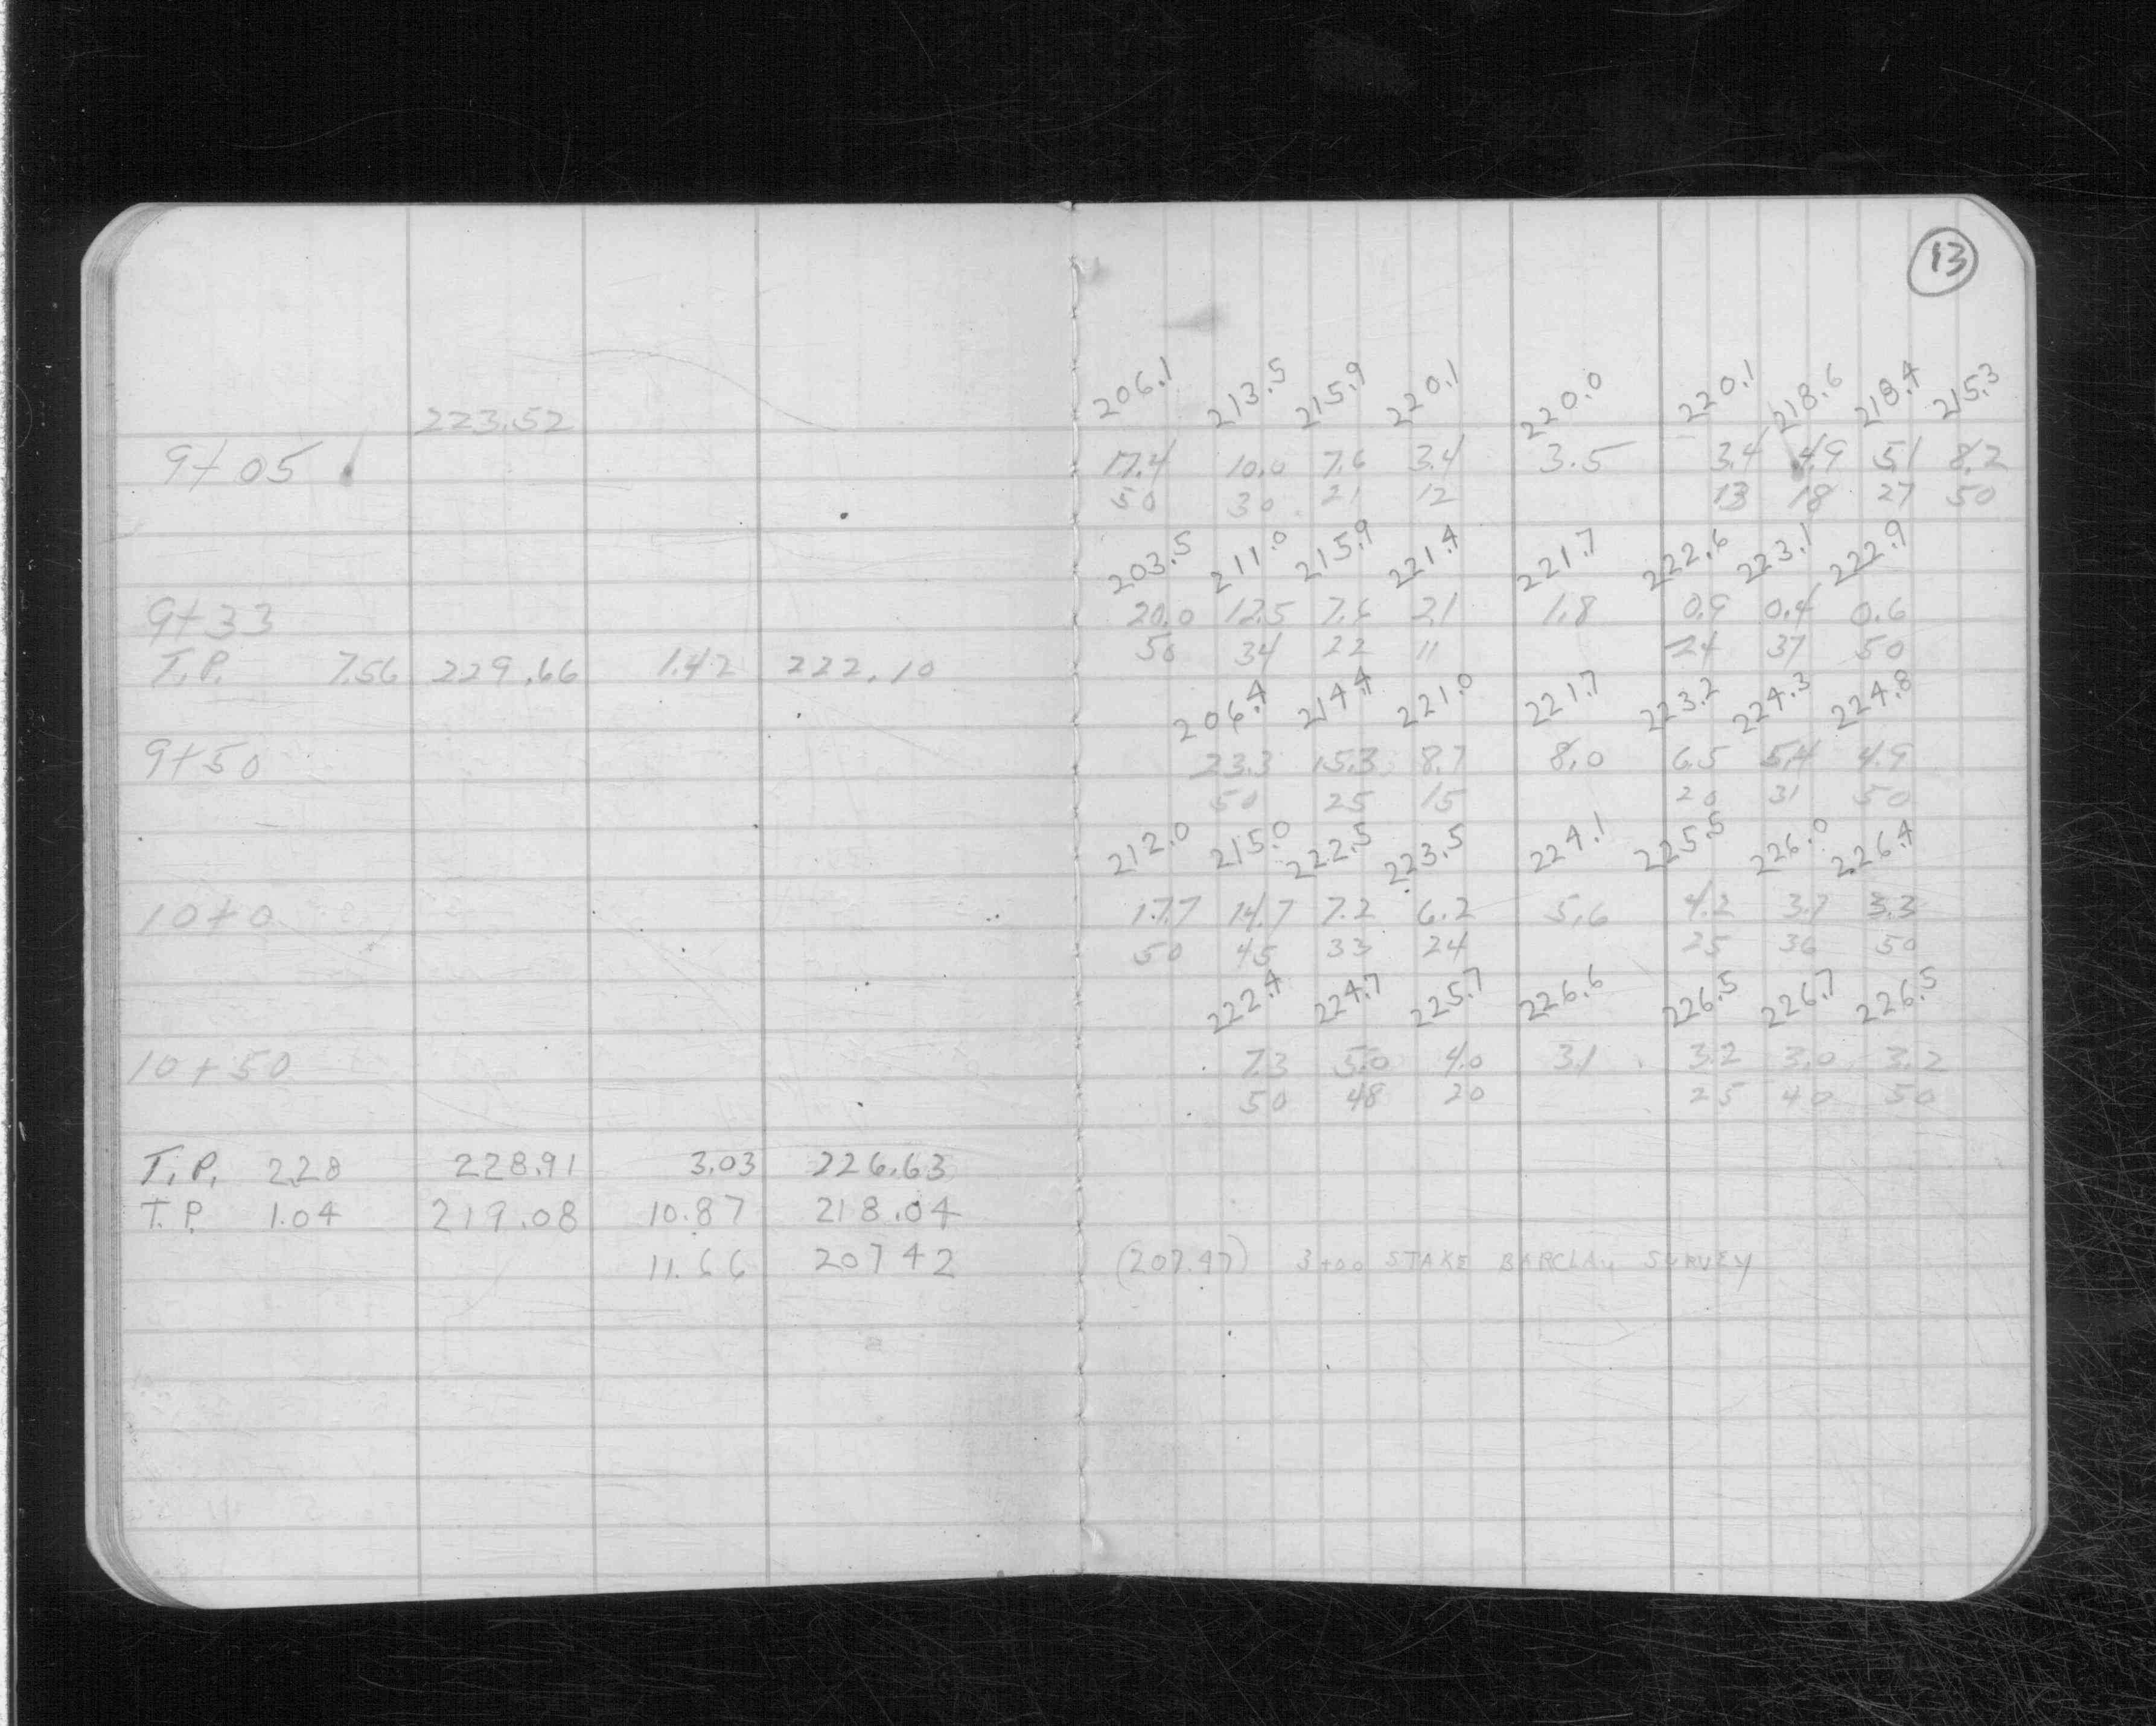 13
206.1 213.5 215.9 220.1 220.0 220.1 218.6 218.4 215.3
223.52
9+05 17.4 10.0 7.6 3.4 3.5 3.4 4.9 5.1 8.2
50 30 21 12 13 18 27 50
203.5 211.0 215.9 221.4 221.7 222.6 223.1 222.9
9+33 20.0 12.5 7.6 2.1 1.8 0.9 0.4 0.6
50 34 22 11 24 37 50
T.P. 7.56 229.66 1.42 222.10
206.4 214.4 221.0 221.7 223.2 224.3 224.8
9+50 23.3 15.3 8.7 8.0 6.5 5.4 4.9
50 25 15 20 31 50
212.0 215.0 222.5 223.5 224.1 225.5 226.0 226.4
10+0 17.7 14.7 7.2 6.2 5.6 4.2 3.7 3.3
50 45 33 24 25 36 50
222.4 224.7 225.7 226.6 226.5 226.7 226.5
10+50 7.3 5.0 4.0 3.1 3.2 3.0 3.2
50 48 20 25 40 50
T.P. 2.28 228.91 3.03 226.63
T.P. 1.04 219.08 10.87 218.04
11.66 207 42 (207.47) 3+00 STAKE BARCLAY SURVEY